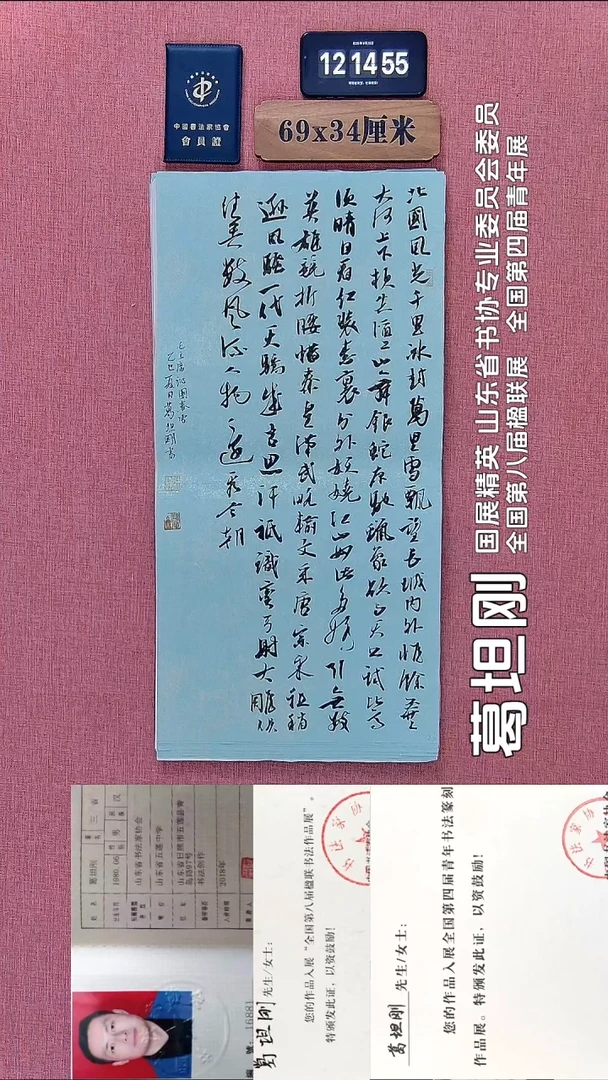 中國書法家協會
會員證
12 14 55
69x34厘米
北國風光千里冰封萬里雪飄望長城内外惟餘莽莽
大河上下頓失滔滔山舞銀蛇原馳蠟象欲与天公試比高
須晴日看紅裝素裹分外妖嬈江山如此多嬌引無數
英雄競折腰惜秦皇漢武略輸文采唐宗宋祖稍
遜風騷一代天驕成吉思汗祇識彎弓射大雕俱
往矣數風流人物還看今朝
毛主席沁園春雪
乙巳夏日葛坦剛書
葛坦刚
国展精英 山东省书协专业委员会委员
全国第八届楹联展 全国第四届青年展
葛坦刚
山东省书法家协会
山东省五莲中学
书法创作
2018年
葛坦刚 先生/女士：
您的作品入展“全国第八届楹联书法作品展”。
特颁发此证，以资鼓励！
葛坦刚 先生/女士：
您的作品入展全国第四届青年书法篆刻
作品展。特颁发此证，以资鼓励！